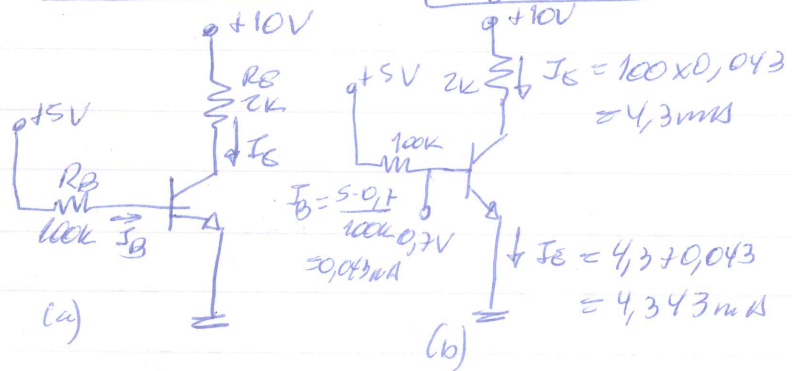 +10V
RC
2K
IC
+5V
RB
100K
IB
(a)
+10V
+5V
2K
IC = 100x0,043
= 4,3mA
100K
IB = 5-0,7
100K
=0,043mA
0,7V
IE = 4,3+0,043
= 4,343mA
(b)